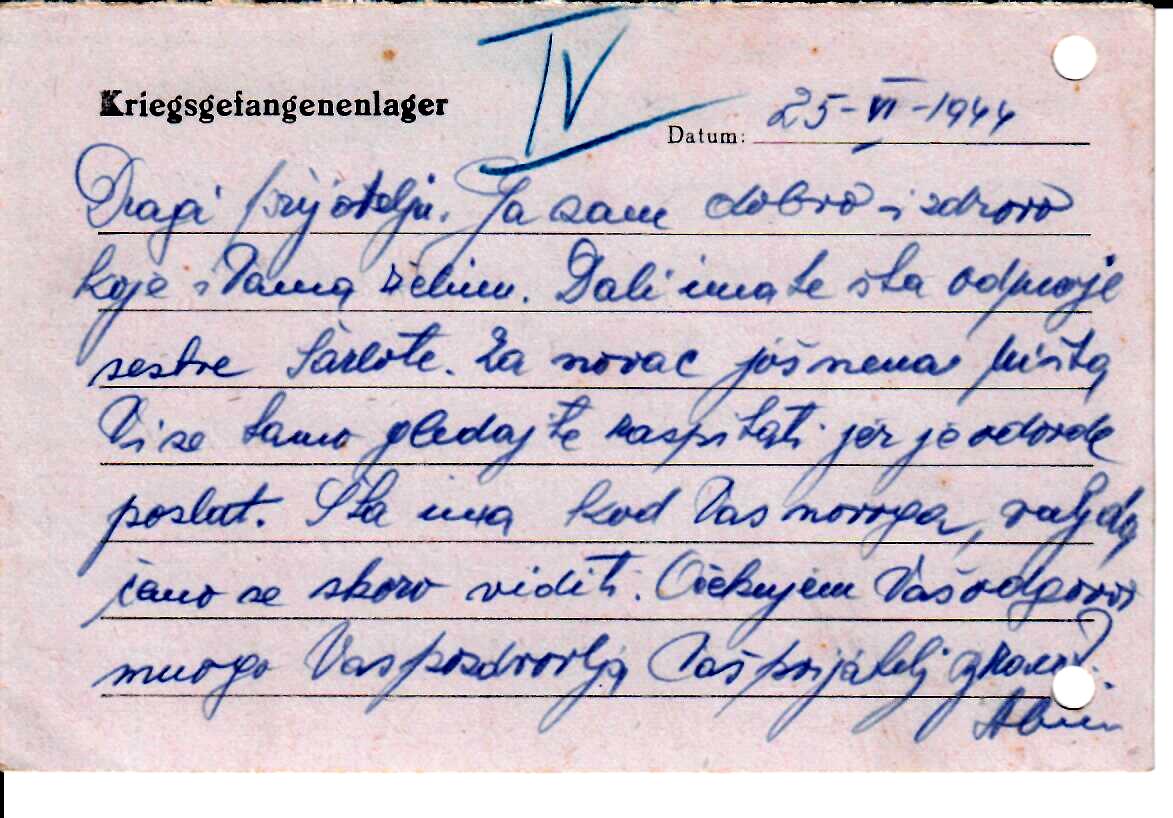 IV
Kriegsgefangenenlager
Datum: 25-VI-1944
Dragi prijatelju. Ja sam dobro i zdravo
koje i Vama želim. Dali imate šta od moje
sestre Šarlote. Za novac još nema ništa
Vi se tamo gledajte raspitati jer je odovde
poslat. Šta ima kod Vas novoga, valjda
ćemo se skoro viditi. Očekujem Vaš odgovor
mnogo Vas pozdravlja Vaš prijatelj